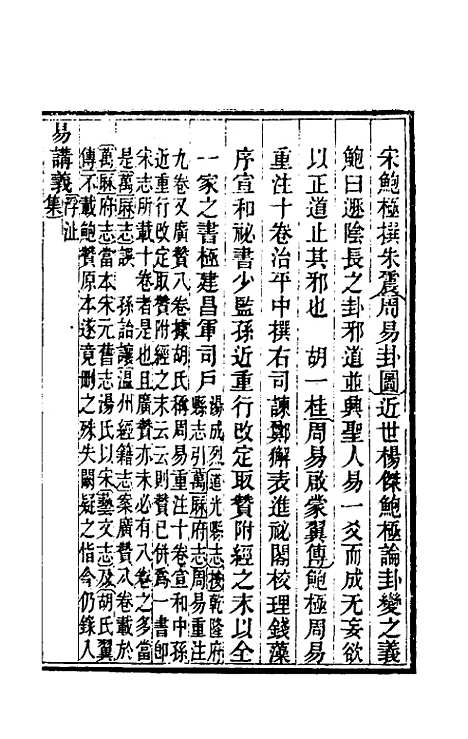 宋鮑極撰朱震周易卦圖近世楊傑鮑極論卦變之義
鮑曰遯陰長之卦邪道並興聖人易一爻而成无妄欲
以正道止其邪也　胡一桂周易啟蒙翼傳鮑極周易
重注十卷治平中撰右司諫鄭獬表進祕閣校理錢藻
序宣和祕書少監孫近重行改定取贊附經之末以全
一家之書極建昌軍司戶
湯成烈道光縣志考乾隆府
縣志引萬厤府志周易重注
九卷又廣贊八卷據胡氏稱周易重注十卷宣和中孫
近重行改定取贊附經之末云云則贊已併為一書卽
宋志所載十卷者是也且廣贊亦未必有八卷之多當
是萬厤志誤　孫詒讓溫州經籍志案廣贊八卷載於
萬厤府志當本宋元舊志湯氏以宋藝文志及胡氏翼
傳不載鮑贊原本遂竟刪之殊失闕疑之恉今仍錄入
易講義
浮沚
集